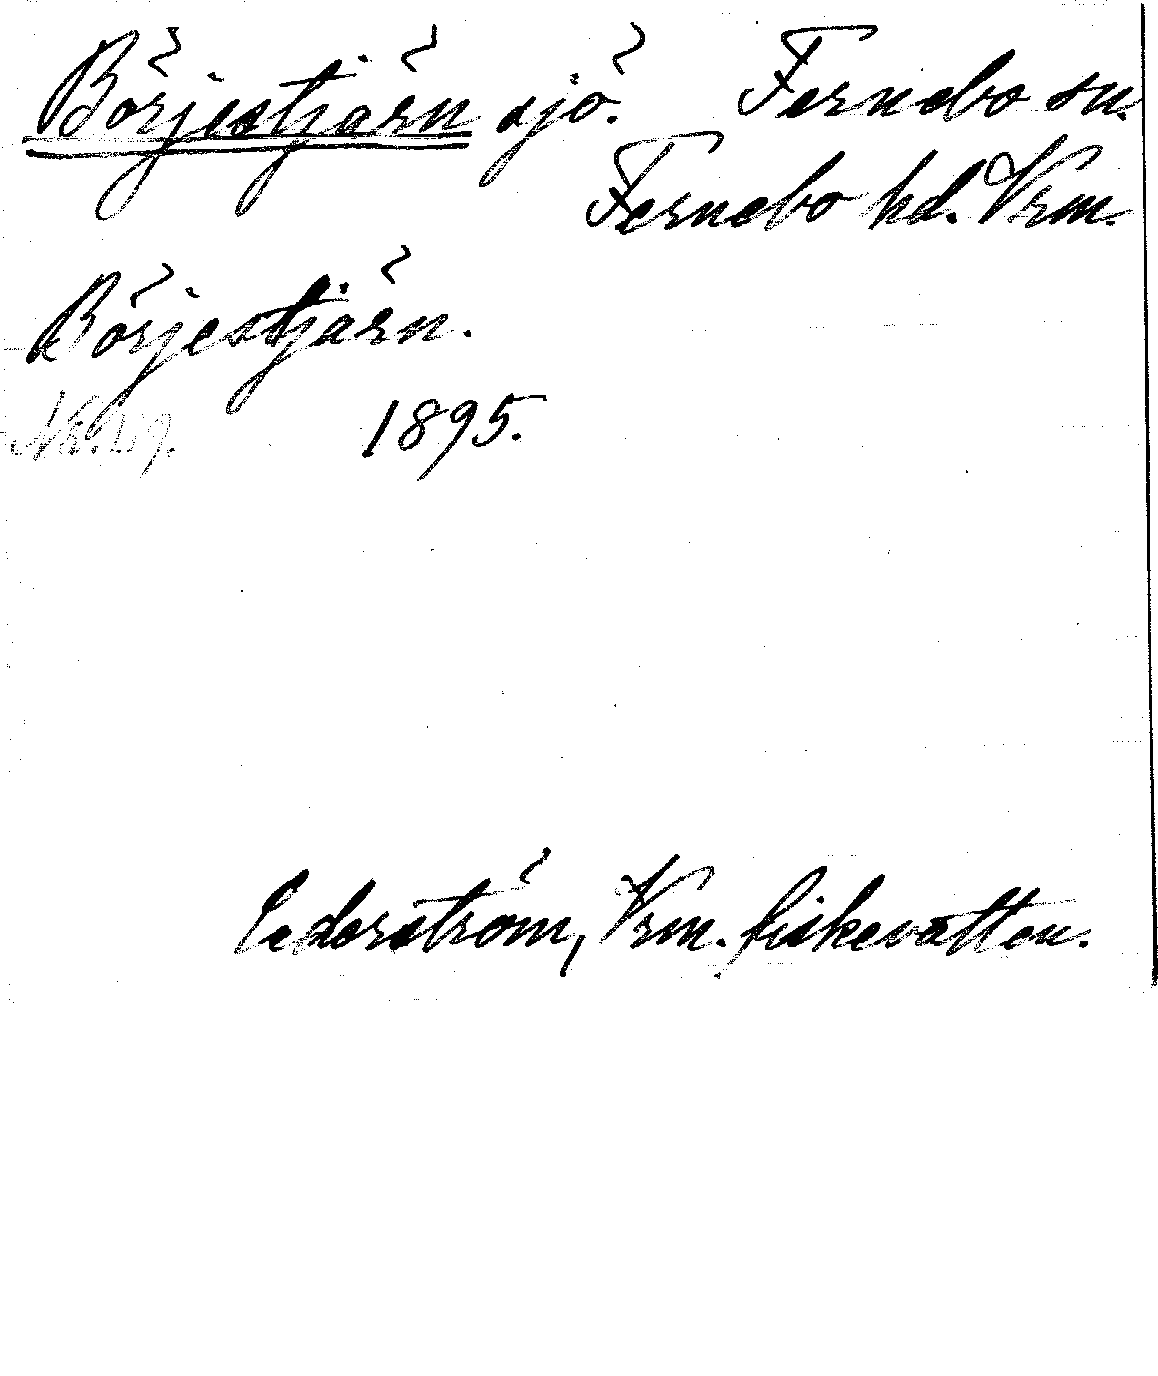 Börjestjärn sjö. Fernebo sn.
Fernebo hd. Vrm.
Börjestjärn.
1895.
Cederström, Vrm. fiskevatten.